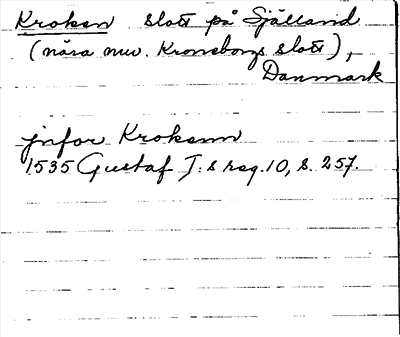 Kroken slott på Själland
(nära nuv. Kronsborgs slott),
Danmark
jnfor Kroksnn
1535 Gustaf I:s reg. 10, s. 257.